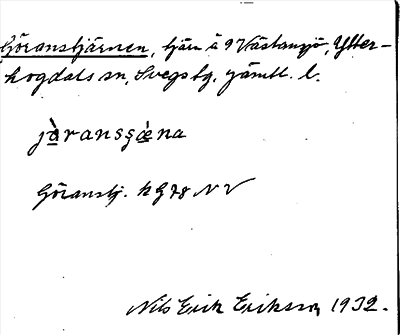 Göranstjärnen, tjärn å 9 Västansjö, Ytter-
hogdals sn, Svegs tg. Jämtl. l.
jàransɕæ̀na
Göranstj. kg 78 NV
Nils Erik Eriksson 1932.